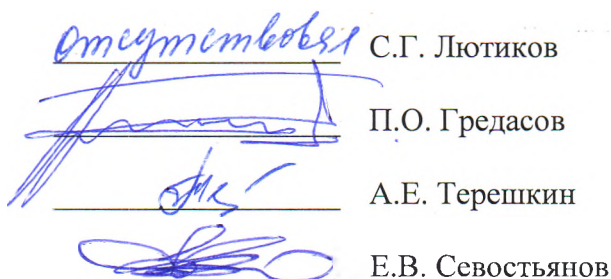 отсутствовал С.Г. Лютиков
П.О. Гредасов
А.Е. Терешкин
Е.В. Севостьянов